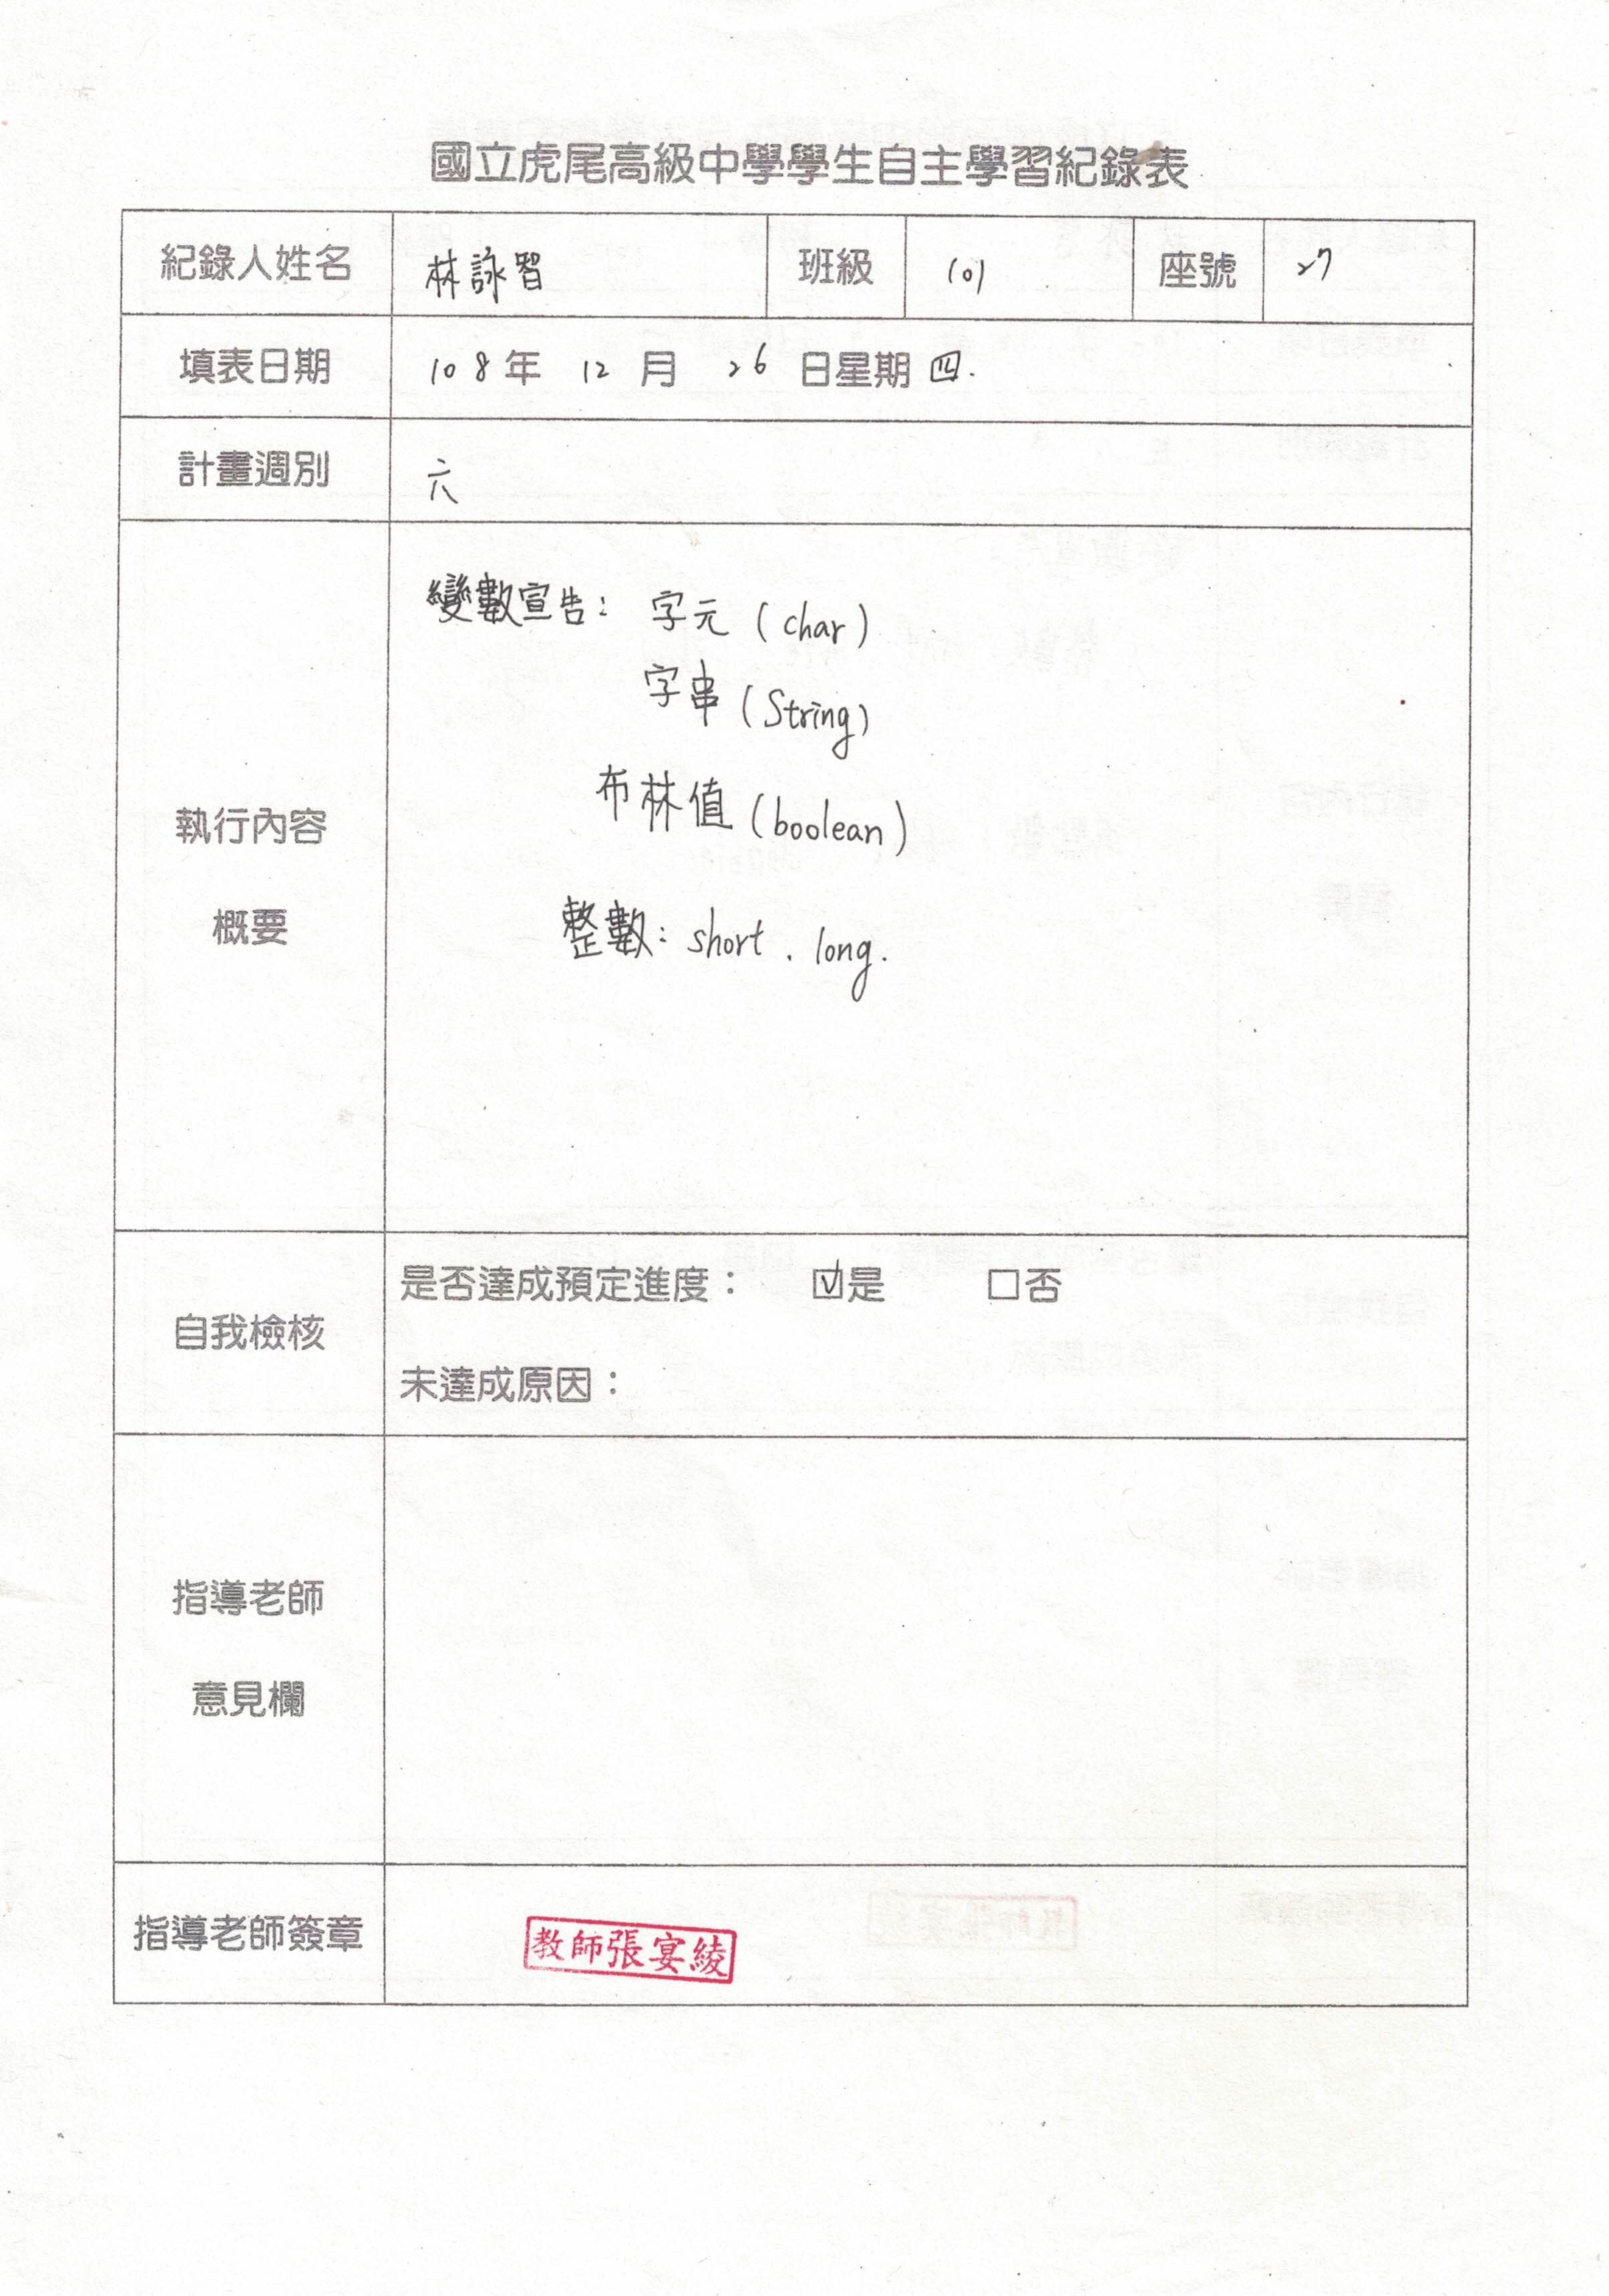 國立虎尾高級中學學生自主學習紀錄表
紀錄人姓名 林詠智 班級 101 座號 27
填表日期 108年 12月 26日星期四.
計畫週別 六
執行內容
概要
變數宣告: 字元(char)
字串(String)
布林值(boolean)
整數: short. long.
自我檢核
是否達成預定進度： ☑是 □否
未達成原因：
指導老師
意見欄
指導老師簽章 教師張宴綾